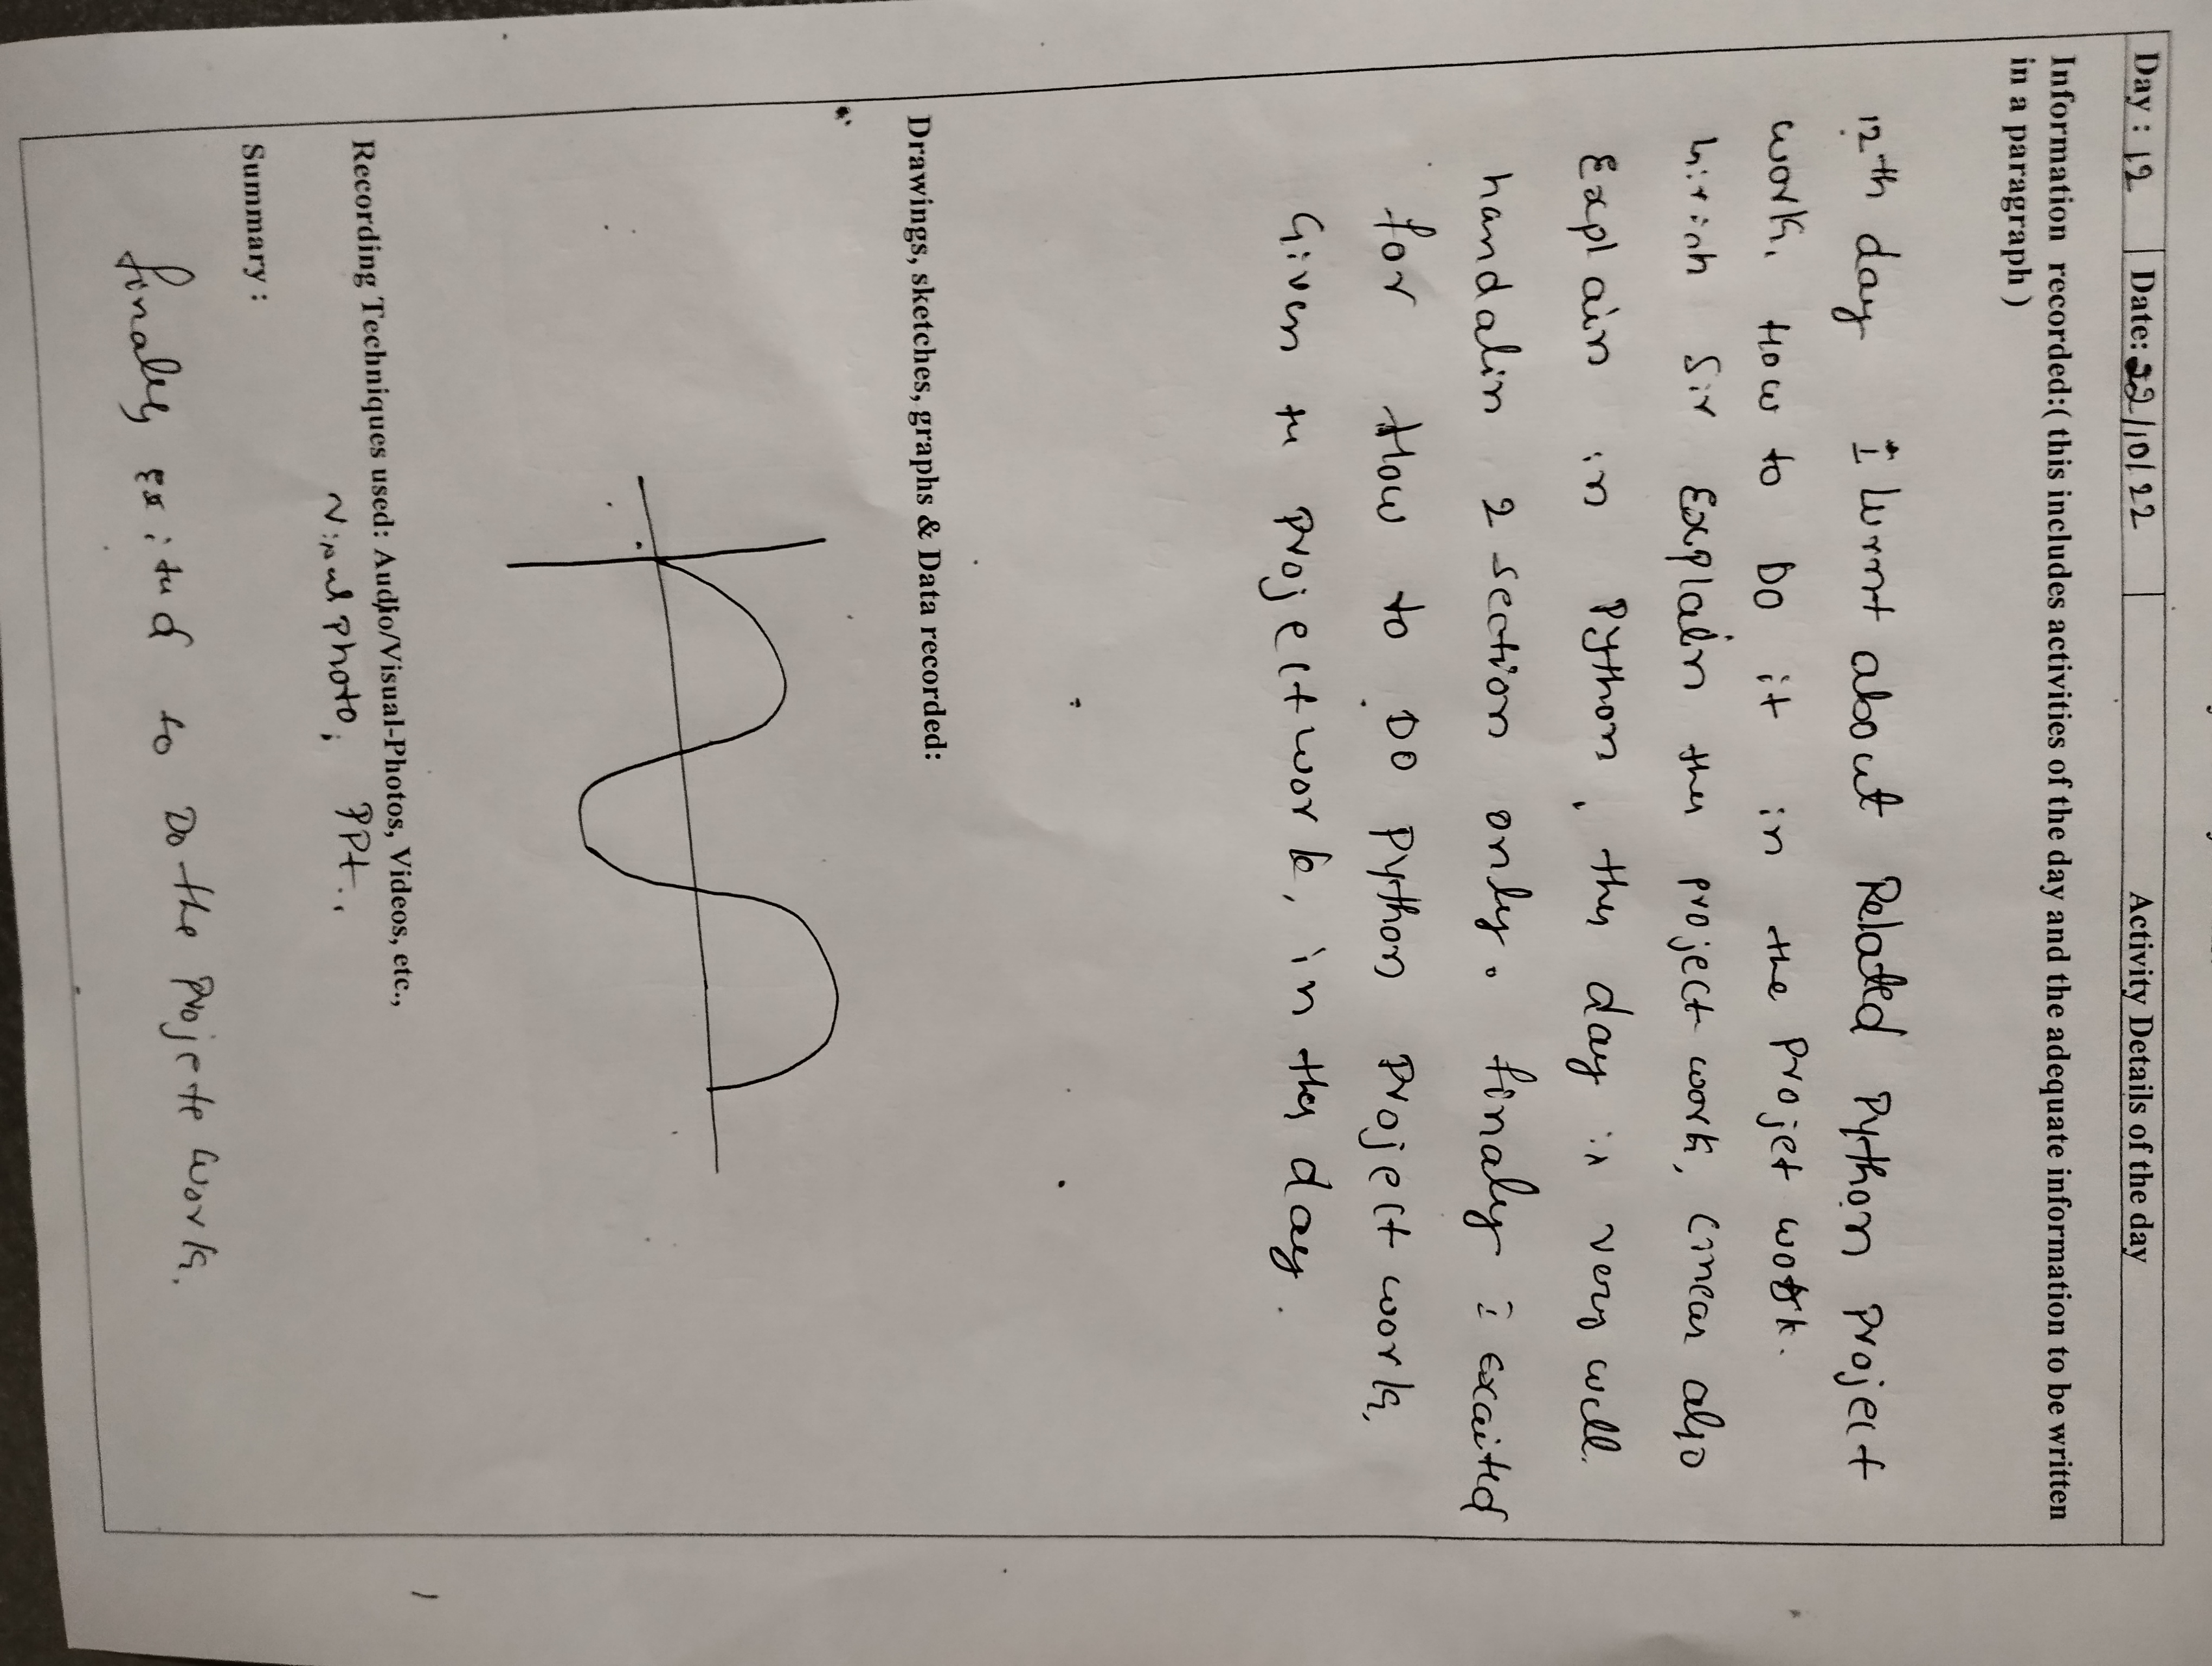 Day : 12 Date: 22/10/22 Activity Details of the day
Information recorded:( this includes activities of the day and the adequate information to be written
in a paragraph )
12th day I lurnt about Related Python Project
work, How to DO it in the Projet work.
Sir Explain the project work, also
Explain in Python, the day is very well
handalin 2 section only. finaly i excited
for How to DO Python Project work,
Given the Project work, in the day.
Drawings, sketches, graphs & Data recorded:
Recording Techniques used: Audio/Visual-Photos, Videos, etc.,
Photo, PPt.,
Summary :
finaley to Do the Projete work.